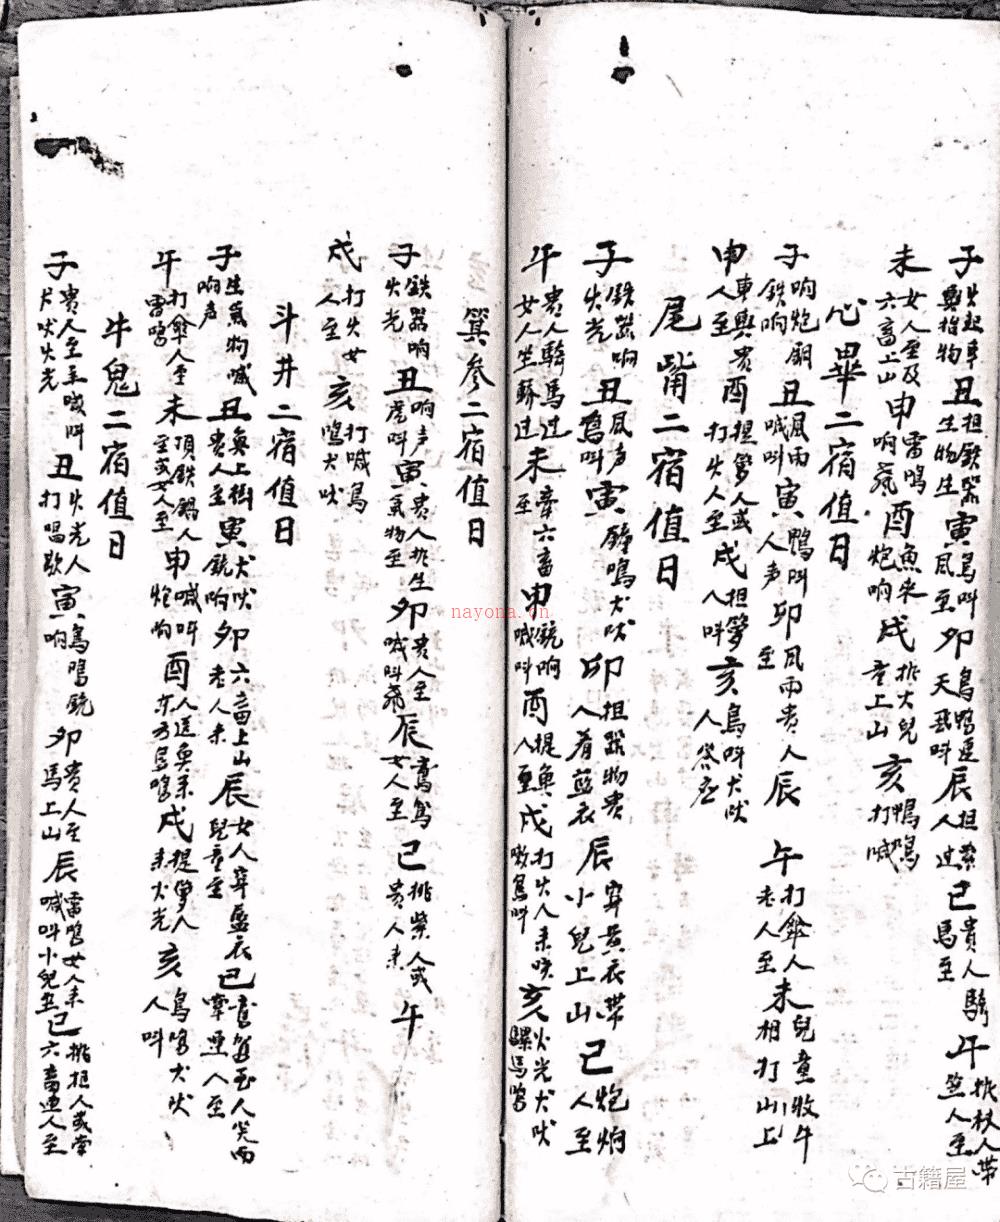 子 火起車 丑 担鉄器 生物生 寅 鳥叫 風至 卯 鳥鴨連 天飛叫 辰 担 人过 巳 貴人騎 馬至 午 人帶 人至
未 女人至及 六畜上山 申 雷鳴 响 酉 魚来 炮响 戌 兒 童上山 亥 鴨鳴 打喊
心畢二宿值日
子 响炮 鉄响 丑 風雨 喊叫 寅 鴨叫 人声 卯 風雨貴人 至 辰 午 打傘人 老人至 未 兒童牧牛 相打山上
申 車輿貴 人至 酉 担箩人或 打火人至 戌 担箩 人叫 亥 鳥叫犬吠 人答应
尾觜二宿值日
子 鉄器响 火光 丑 風声 叫 寅 鐘鳴犬吠 卯 担器物貴 人着藍衣 辰 穿黄衣帶 小兒上山 巳 炮炯 人至
午 貴人騎馬过 女人坐轎过 未 六畜 至 申 銃响 喊叫 酉 提魚 人至 戌 打火人来 鳥叫 亥 火光犬吠 騾馬鳴
箕参二宿值日
子 鉄器响 火光 丑 响声 虎叫 寅 貴人 生 氣物至 卯 貴人至 喊叫 辰 鳥 女人至 巳 挑柴人或 貴人来 午
戌 打火女 人至 亥 打喊鳥 犬吠
斗井二宿值日
子 生氣物喊 响声 丑 魚上樹 貴人至 寅 犬吠 銃响 卯 六畜上山 老人来 辰 女人穿藍衣 兒童至 巳 至人 雨 人至
午 打傘人至 雷鳴 未 頂鉄鍋人 至或女人至 申 喊叫 炮响 酉 人送魚来 东方鳥鳴 戌 提箩人 来火光 亥 鳥鳴犬吠 人叫
牛鬼二宿值日
子 貴人至 喊叫 犬吠火光 丑 火光人 打唱歌 寅 鳥鳴銃 响 卯 貴人至 馬上山 辰 雷鳴女人来 喊叫小兒 巳 挑担人或 六畜 人至
nayona.cn
古籍屋